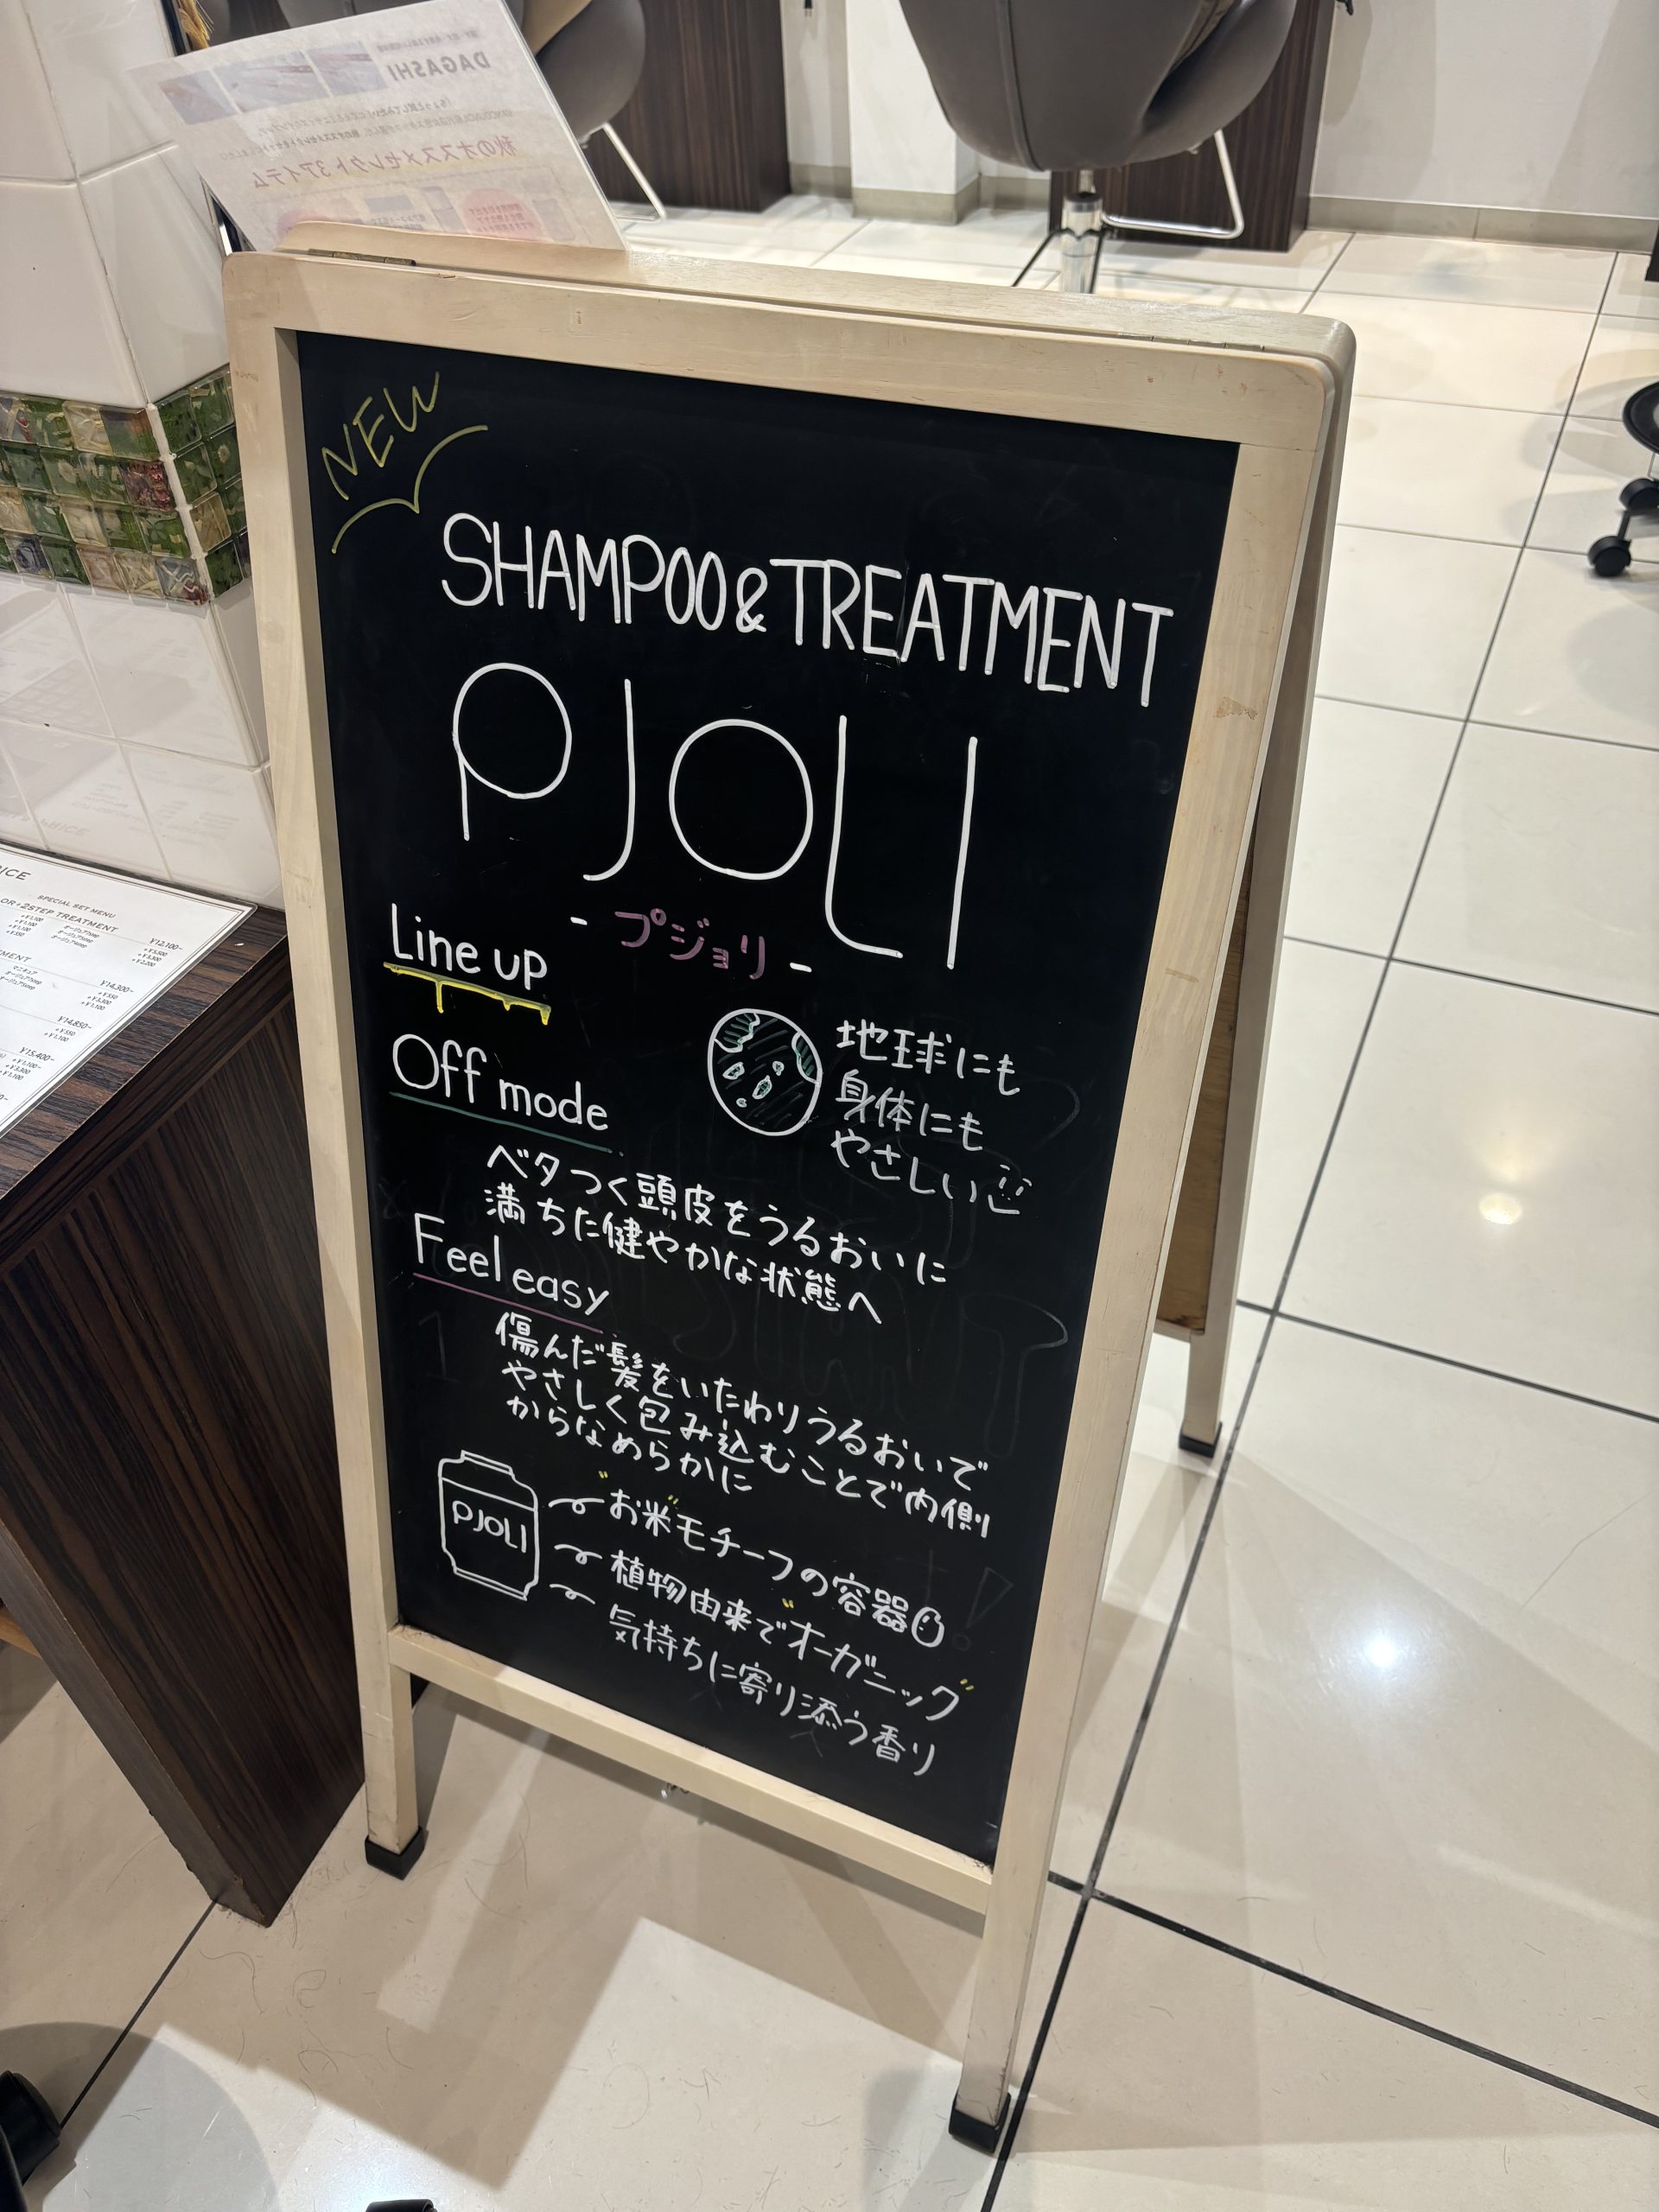 DAGASHI
秋のオススメセレクト3アイテム
NEW
SHAMPOO&TREATMENT
PJOLI
- プジョリ -
Line up
地球にも
身体にも
やさしい
Off mode
ベタつく頭皮をうるおいに
満ちた健やかな状態へ
Feel easy
傷んだ髪をいたわりうるおいで
やさしく包み込むことで内側
からなめらかに
PJOLI
"お米"モチーフの容器
植物由来で"オーガニック"
気持ちに寄り添う香り
SPECIAL SET MENU
2STEP TREATMENT
¥12,100-
¥14,300-
¥14,850-
¥15,400-